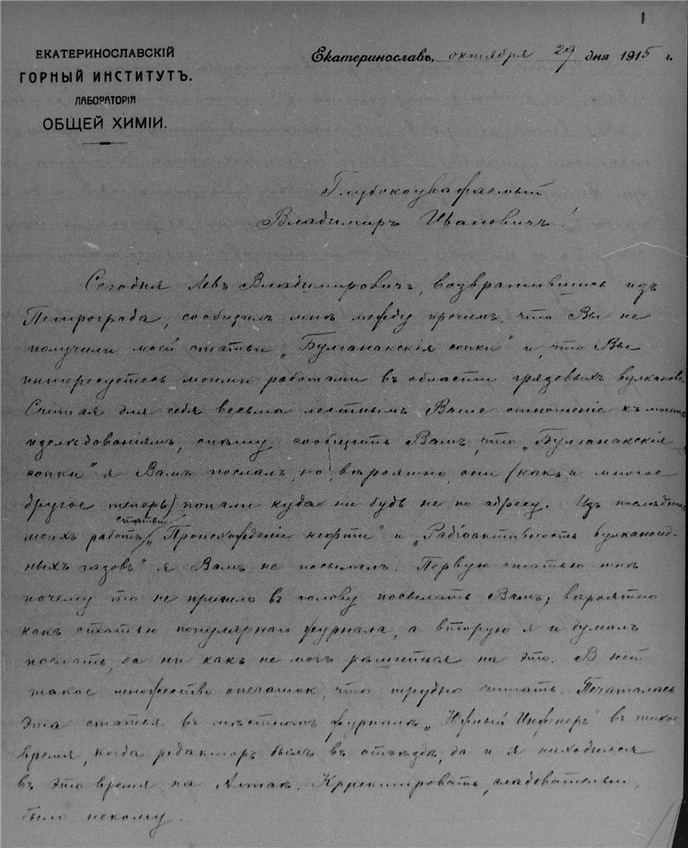 1
ЕКАТЕРИНОСЛАВСКІЙ
ГОРНЫЙ ИНСТИТУТЪ.
ЛАБОРАТОРІЯ
ОБЩЕЙ ХИМІИ.
Екатеринославъ, октября 29 дня 1915 г.
Глубокоуважаемый
Владимиръ Ивановичъ!
Сегодня Левъ Владимировичъ, возвратившись изъ
Петрограда, сообщилъ мнѣ между прочимъ, что Вы не
получили моей статьи „Булганакскія сопки" и, что Вы
интересуетесь моими работами въ области грязевыхъ вулкановъ.
Считая для себя весьма лестнымъ Ваше отношеніе къ моимъ
изслѣдованіямъ, спѣшу сообщить Вамъ, что „Булганакскія
сопки" я Вамъ послалъ, но, вѣроятно, они (какъ и многое
другое теперь) попали куда ни будь не по адресу. Изъ послѣднихъ
моихъ работъ статьи „Происхожденіе нефти" и „Радіоактивность вулканоид-
ныхъ газовъ" я Вамъ не посылалъ. Первую статью мнѣ
почему то не пришло въ голову посылать Вамъ, вѣроятно
какъ статью популярнаго журнала, а вторую я и думалъ
послать, да ни какъ не могъ рѣшиться на это. Въ ней
такое множество опечатокъ, что трудно читать. Печаталась
эта статья въ мѣстномъ журналѣ „Южный Инженеръ" въ такое
время, когда редакторъ былъ въ отъѣздѣ, да и я находился
въ это время на Алтаѣ. Корректировать, слѣдовательно,
было некому.